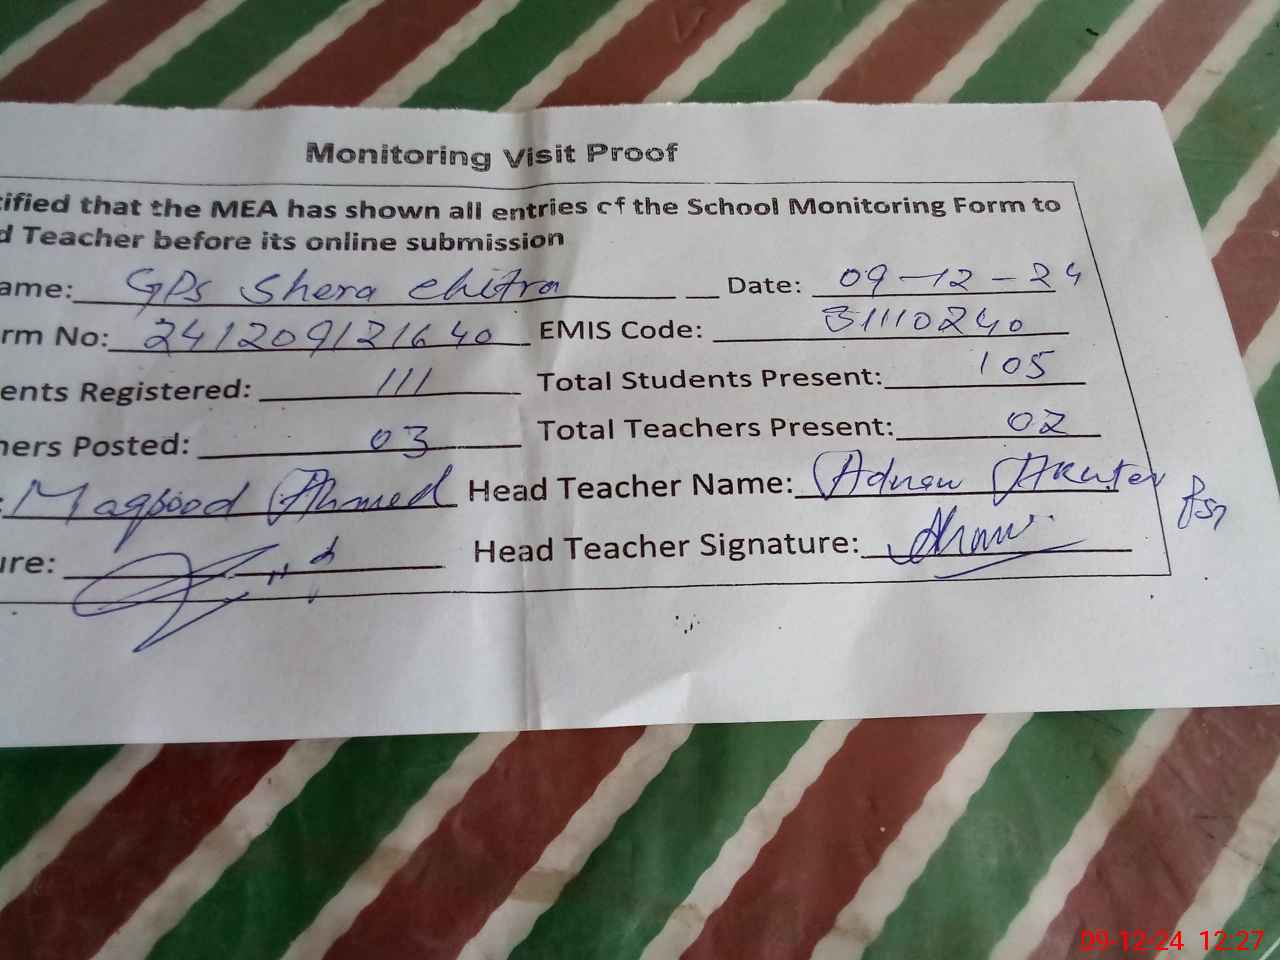 Monitoring Visit Proof
tified that the MEA has shown all entries of the School Monitoring Form to
d Teacher before its online submission
ame: GPS Shera Chitra Date: 09-12-24
rm No: 241209121640 EMIS Code: 31110240
ents Registered: 111 Total Students Present: 105
hers Posted: 03 Total Teachers Present: 02
: Maqbood Ahmed Head Teacher Name: Adnan Akhter
ure: Head Teacher Signature:
09-12-24 12:27